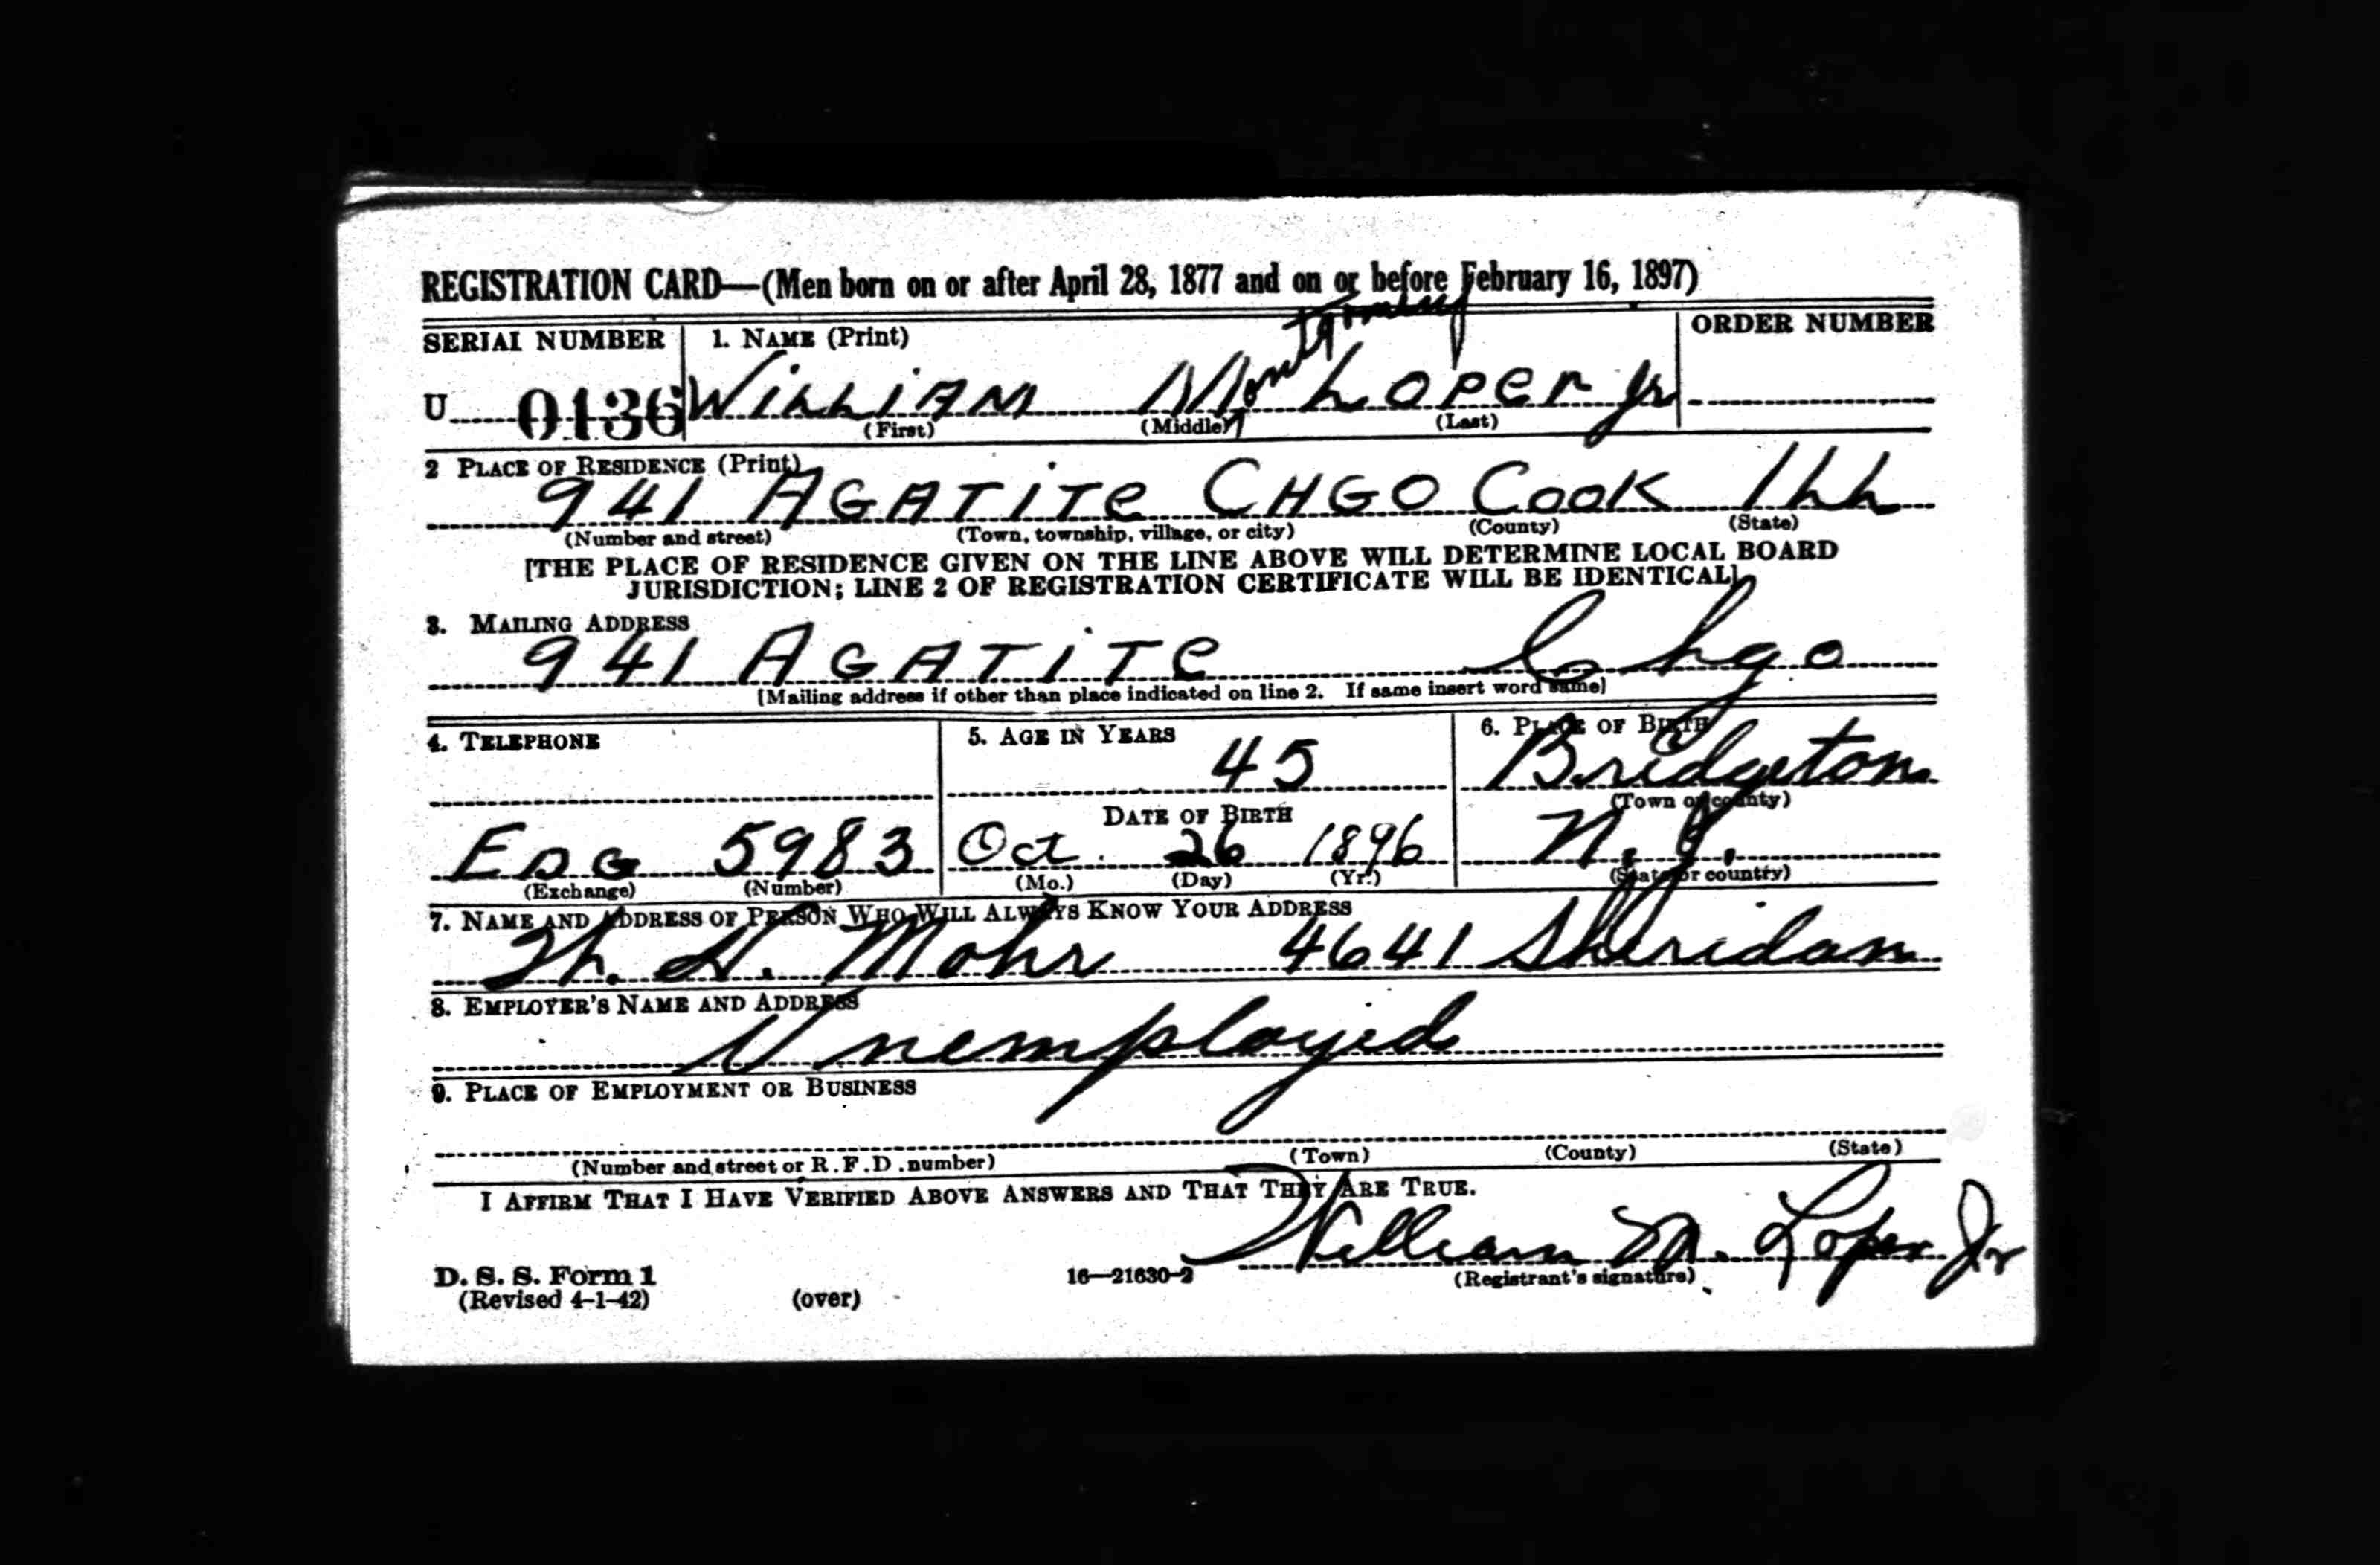 REGISTRATION CARD—(Men born on or after April 28, 1877 and on or before February 16, 1897)
SERIAL NUMBER 1. NAME (Print) ORDER NUMBER
U 0136 WILLIAM Montgomery LOPER Jr
(First) (Middle) (Last)
2 PLACE OF RESIDENCE (Print)
941 AGATITE CHGO COOK ILL
(Number and street) (Town, township, village, or city) (County) (State)
[THE PLACE OF RESIDENCE GIVEN ON THE LINE ABOVE WILL DETERMINE LOCAL BOARD
JURISDICTION; LINE 2 OF REGISTRATION CERTIFICATE WILL BE IDENTICAL]
3. MAILING ADDRESS
941 AGATITE Chgo
[Mailing address if other than place indicated on line 2. If same insert word same]
4. TELEPHONE 5. AGE IN YEARS 6. PLACE OF BIRTH
45 Bridgeton
DATE OF BIRTH (Town or county)
EDG 5983 Oct. 26 1896 N. J.
(Exchange) (Number) (Mo.) (Day) (Yr.) (State or country)
7. NAME AND ADDRESS OF PERSON WHO WILL ALWAYS KNOW YOUR ADDRESS
Mohr 4641 Sheridan
8. EMPLOYER'S NAME AND ADDRESS
Unemployed
9. PLACE OF EMPLOYMENT OR BUSINESS
(Number and street or R.F.D. number) (Town) (County) (State)
I AFFIRM THAT I HAVE VERIFIED ABOVE ANSWERS AND THAT THEY ARE TRUE.
William M. Loper Jr
D. S. S. Form 1 16—21630-2 (Registrant's signature)
(Revised 4-1-42) (over)